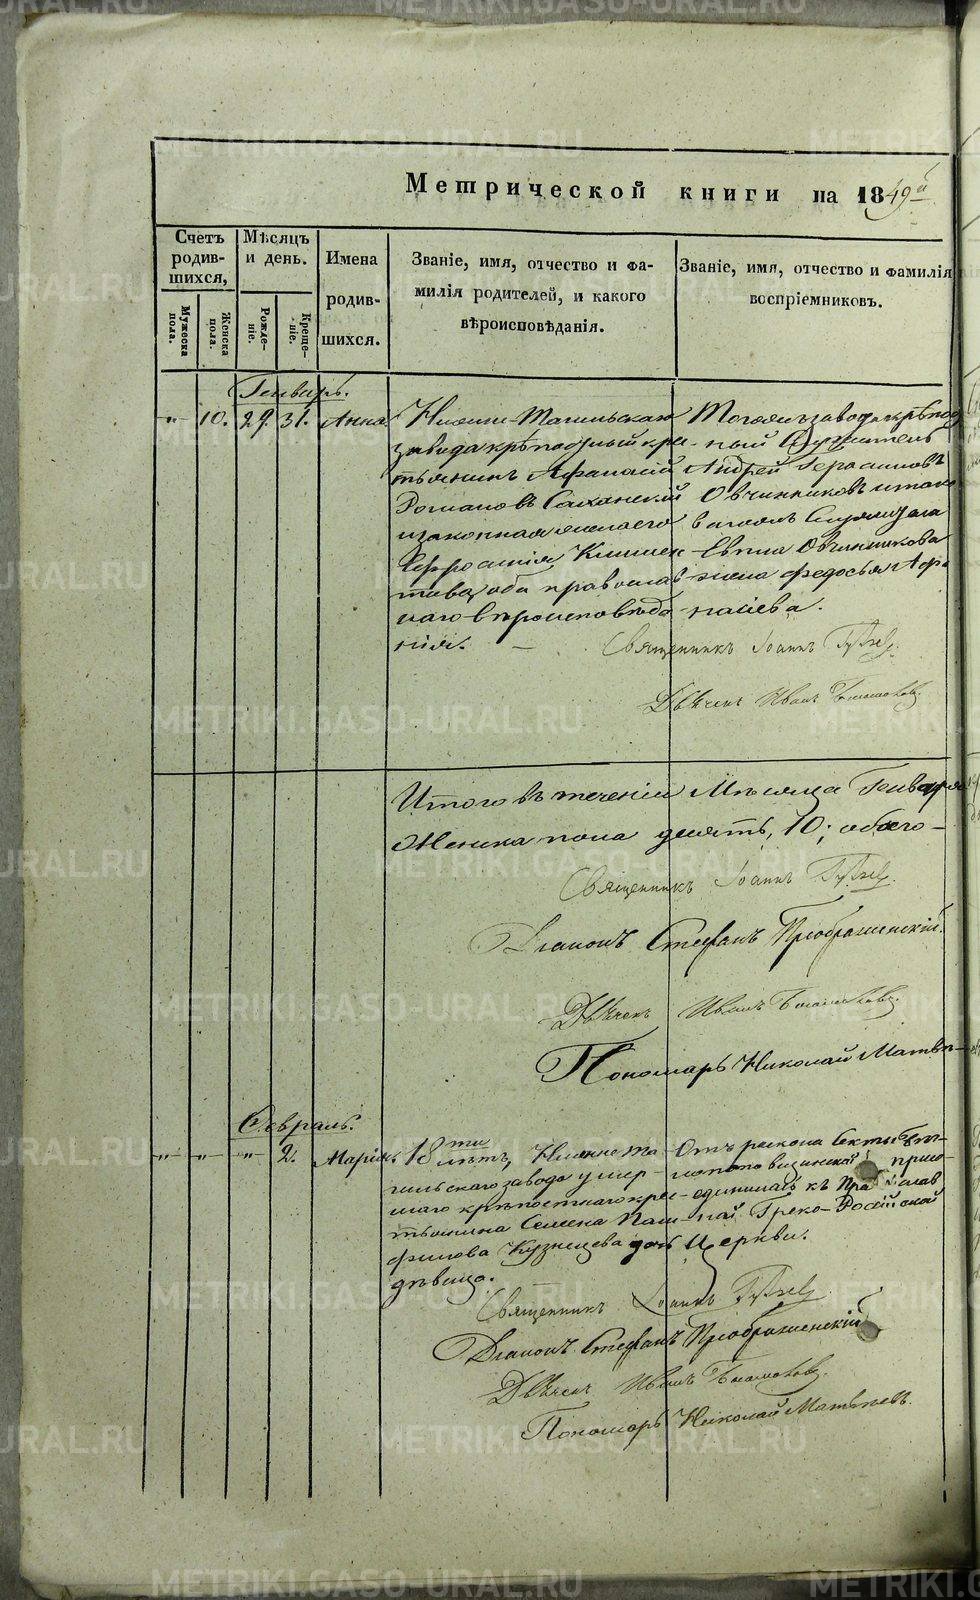 Метрической книги на 1849й
Счетъ родившихся,
Мѣсяцъ и день.
Имена родившихся.
Званіе, имя, отчество и фамилія родителей, и какого вѣроисповѣданія.
Званіе, имя, отчество и фамилія воспріемниковъ.
Мужеска пола.
Женска пола.
Рожденіе.
Крещеніе.
Генварь.
" 10. 29. 31. Анна
Нижне-Тагильскаго
завода крѣпостный кре-
стьянинъ Афанасій
Романовъ
и законная жена его
Ефросинія Климен-
това, оба православ-
наго вѣроисповѣда-
нія.
Тогоже завода крѣпос-
ный Служитель
Андрей Герасимовъ
Овчинниковъ и
Овчинникова
жена Федосья Афа-
насіева.
Священникъ Іоаннъ
Дьячекъ Иванъ
Итого въ теченіи Мѣсяца Генваря
Женска пола десять, 10; обоего-
Священникъ Іоаннъ
Діаконъ Стефанъ Преображенскій.
Дьячекъ Иванъ
Пономарь Николай Матвѣ-
Февраль.
" " " 2. Марія
18ти лѣтъ, Нижнета-
гильскаго завода умер-
шаго крѣпостнаго кре-
стьянина Семена Пам-
филова Кузнецова дочь
дѣвица.
Отъ раскола Секты
присо-
единилась къ Православ
ной Греко-Россійской
Церкви.
Священникъ Іоаннъ
Діаконъ Стефанъ Преображенскій
Дьячекъ Иванъ
Пономарь Николай Матвѣевъ.
METRIKI.GASO-URAL.RU